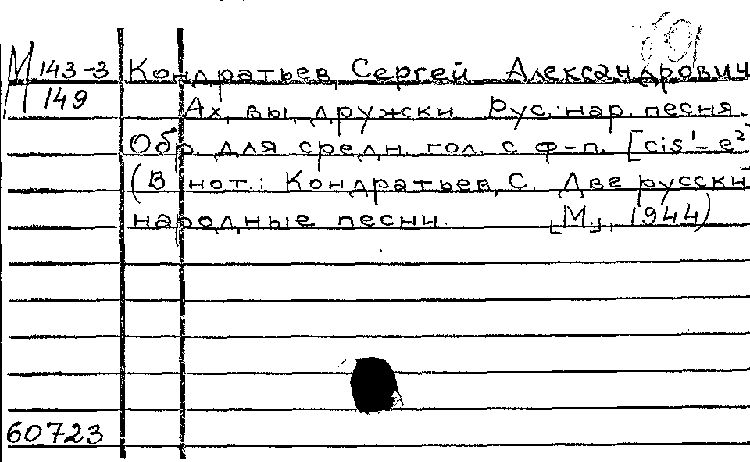 М 143-3 Кондратьев, Сергей Александрович
149 Ах, вы, дружки. Рус. нар. песня.
Обр. для средн. гол. с ф-п. [cis¹-e²
(В нот.: Кондратьев, С. Две русски
народные песни. [М.], 1944)
60723